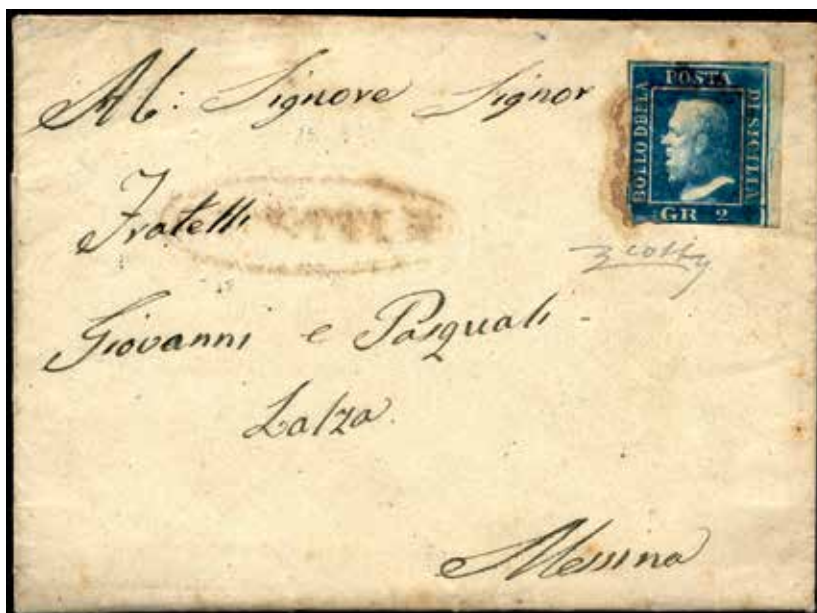 Al: Signore Signor
Fratelli
Giovanni e Pasquali
Lalza
Messina
POSTA
BOLLO DELLA
DI SICILIA
GR 2